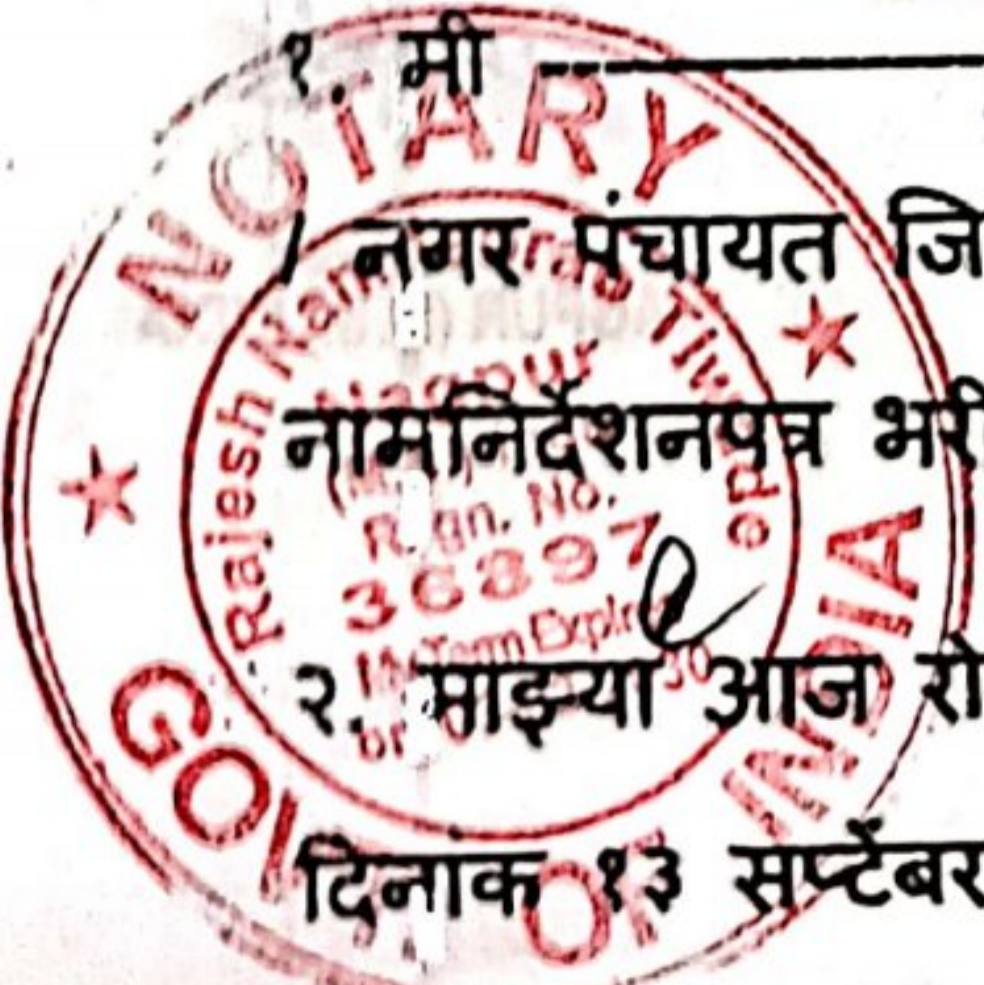 १. मी
/ नगर पंचायत जि
नामनिर्देशनपत्र भरी
२. माझ्या आज रो
दिनांक १३ सप्टेंबर
NOTARY
GOVT. OF INDIA
Rajesh
Nagpur
Regn. No.
36897